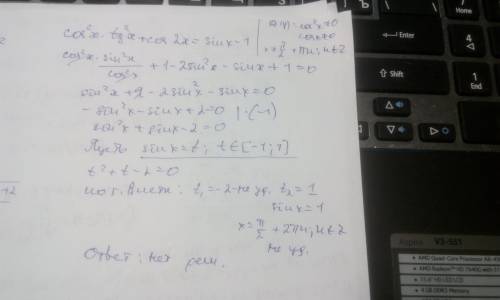 cos²x · tg²x + cos 2x = sinx - 1
D(y) = cos²x ≠ 0
cosx ≠ 0
x ≠ π/2 + πn, n∈Z
cos²x · sin²x/cos²x + 1 - 2sin²x - sinx + 1 = 0
sin²x + 2 - 2sin²x - sinx = 0
- sin²x - sinx + 2 = 0 | · (-1)
sin²x + sinx - 2 = 0
Пусть sinx = t; t∈[-1; 1]
t² + t - 2 = 0
по т. Виета: t₁ = -2 - не уд. t₂ = 1
sinx = 1
x = π/2 + 2πn, n∈Z
не уд.
Ответ: нет реш.
12
Enter
Shift
4
1
End
Aspire V3-551
AMD Quad-Core Processor A8-45
AMD Radeon™ HD 7640G with 51
15.6" HD LED LCD
4 GB DDR3 Memory